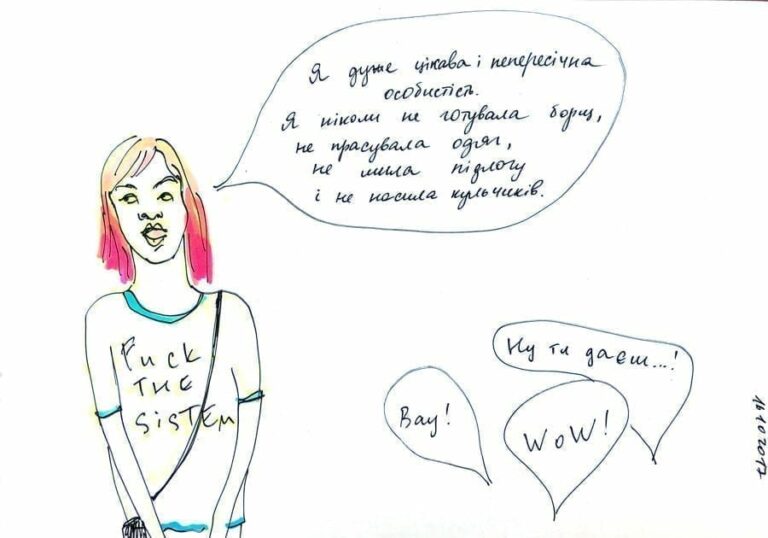 Я дуже цікава і непересічна
особистість.
Я ніколи не готувала борщ,
не прасувала одяг,
не мила підлогу
і не носила кульчиків.
Fuck
THE
SiSTEM
Ну ти даєш...!
Вау!
WoW!
14102017